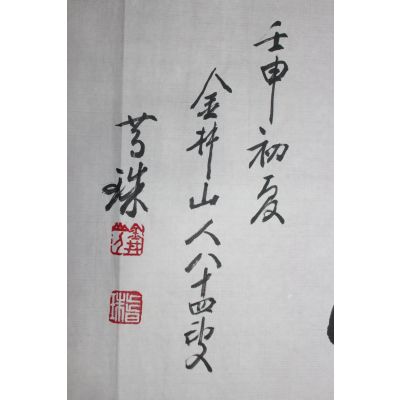 壬申初夏
金井山人八十四叟
珠